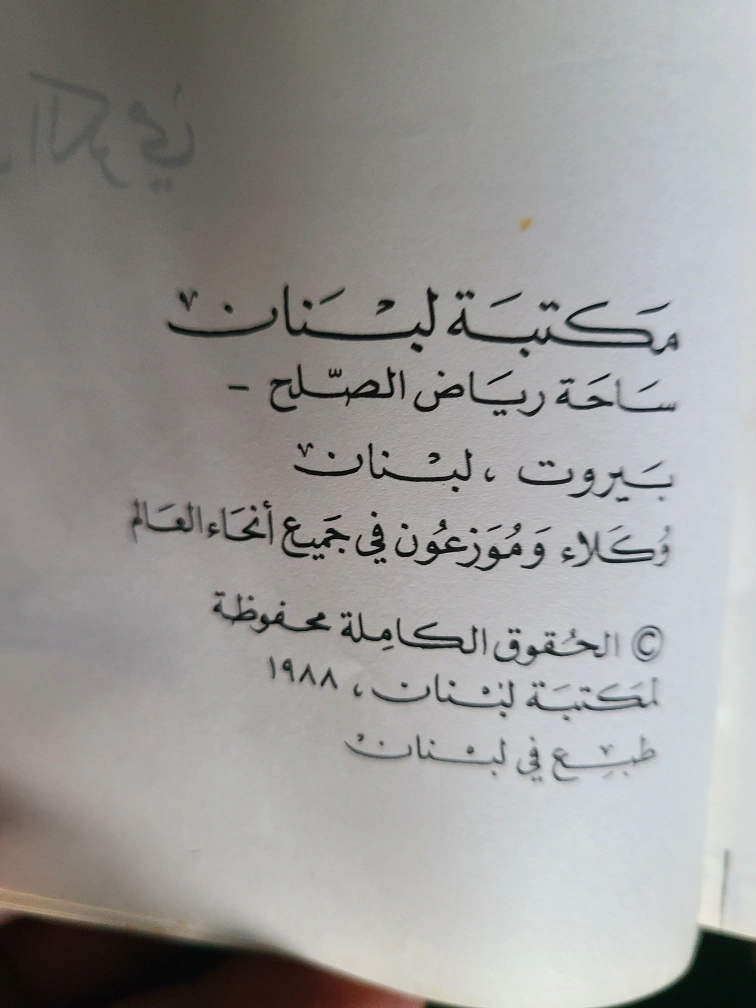 مَكتبَة لبْنَان
سَاحَة ريَاض الصّلح –
بَيروت ، لبْنان
وُكَلاء وَمُوَزعُون في جَميع أنحَاء العَالم
© الحُقوق الكامِلة محفوظة
لمكتبَة لبْنان ، ١٩٨٨
طبع في لبْنان